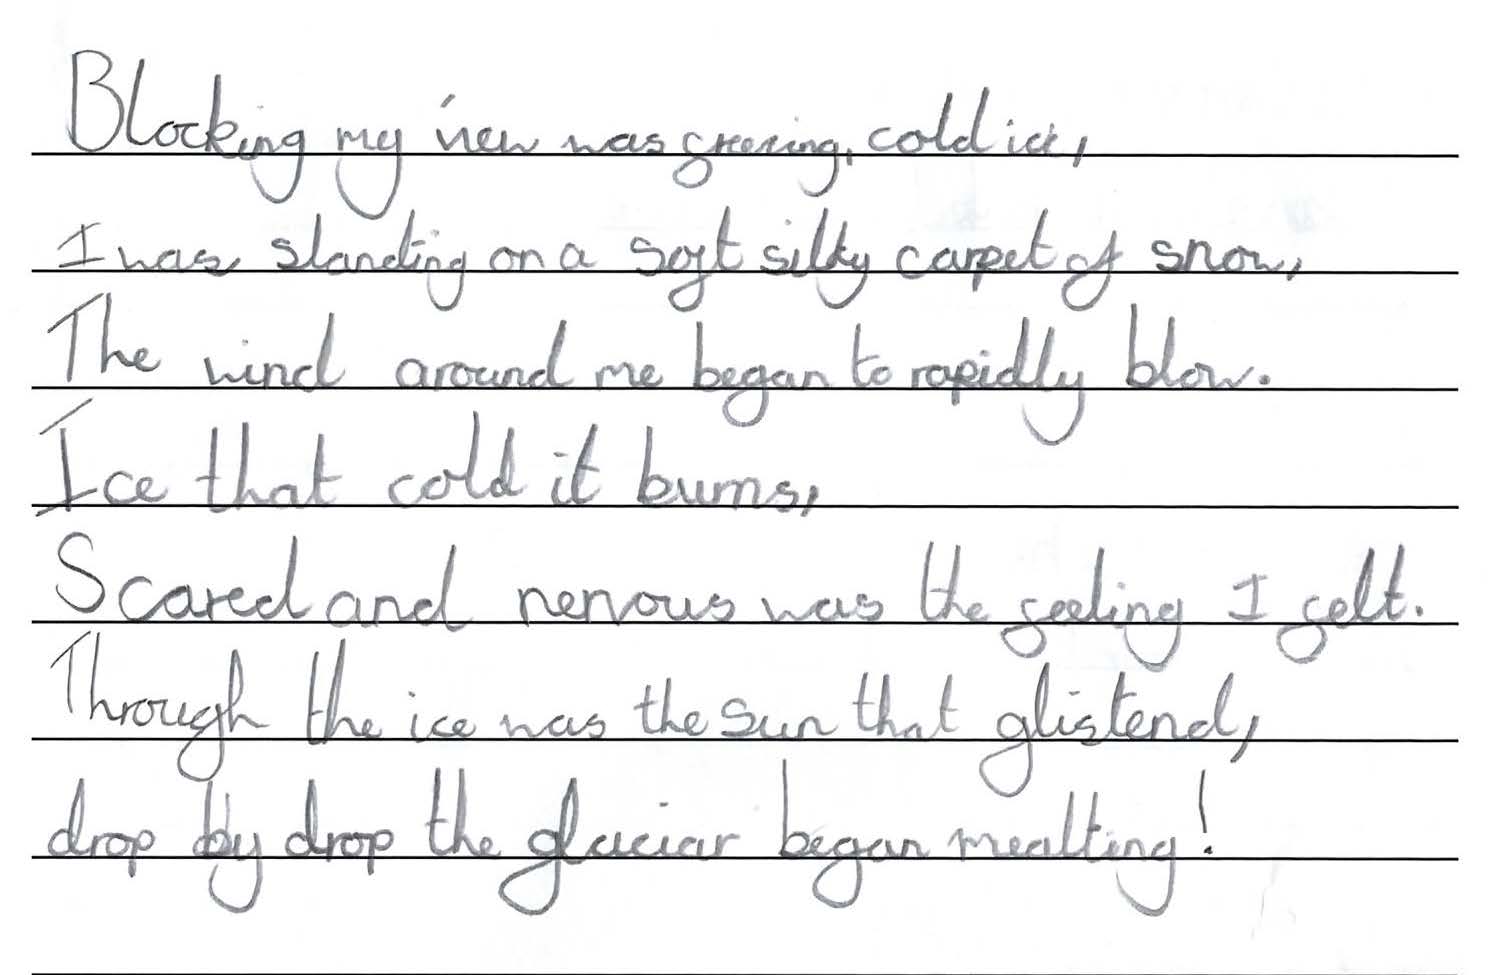 Blocking my view was freezing, cold ice,
I was standing on a soft silky carpet of snow,
The wind around me began to rapidly blow.
Ice that cold it burns,
Scared and nervous was the feeling I felt.
Through the ice was the sun that glistend,
drop by drop the glaciar began mealting!